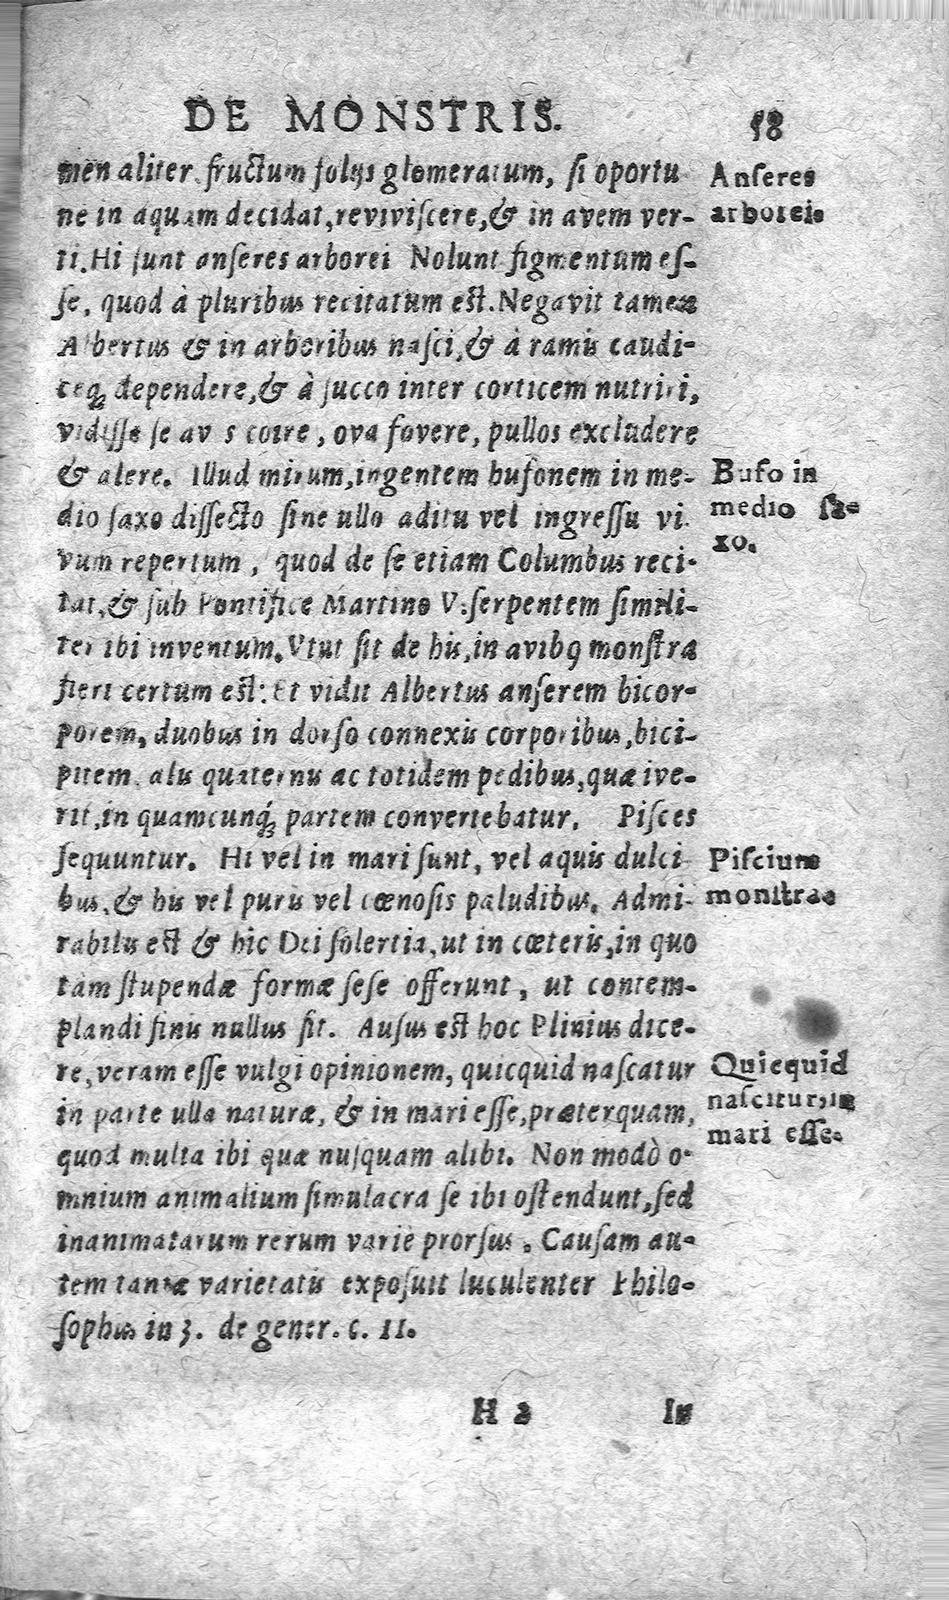 DE MONSTRIS. 58
men aliter fructum folijs glomeratum, ſi oportu
Anſeres
ne in aquam decidat, reviviſcere, & in avem ver-
arborei.
ti. Hi ſunt anſeres arborei Nolunt figmentum eſ-
ſe, quod à pluribus recitatum eſt. Negavit tamen
Albertus & in arboribus naſci, & à ramis caudi-
ceq́; dependere, & à ſucco inter corticem nutriri,
vidiſſe ſe av s coire, ova fovere, pullos excludere
& alere. Illud mirum, ingentem bufonem in me-
Bufo in
dio ſaxo diſſecto ſine ullo aditu vel ingreſſu vi.
medio ſa-
xo.
vum repertum, quod de ſe etiam Columbus reci-
tat, & ſub Pontifice Martino V. ſerpentem ſimili-
ter ibi inventum. Utut ſit de his, in avibꝰ monſtra
fieri certum eſt: Et vidit Albertus anſerem bicor-
porem, duobus in dorſo connexis corporibus, bici-
pitem, alis quaternis ac totidem pedibus, quæ ive-
rit, in quamcunq́; partem convertebatur. Piſces
ſequuntur. Hi vel in mari ſunt, vel aquis dulci
Piſcium
bus, & his vel puris vel cœnoſis paludibus. Admi-
monſtra.
rabilis eſt & hic Dei ſolertia, ut in cœteris, in quo
tam ſtupendæ formæ ſeſe offerunt, ut contem-
plandi finis nullus ſit. Auſus eſt hoc Plinius dice-
re, veram eſſe vulgi opinionem, quicquid naſcatur
Quicquid
in parte ulla naturæ, & in mari eſſe, præterquam,
naſcitur, in
mari eſſe.
quod multa ibi quæ nuſquam alibi. Non modò o-
mnium animalium ſimulacra ſe ibi oſtendunt, ſed
inanimatarum rerum variè prorſus. Cauſam au-
tem tantæ varietatis expoſuit luculenter Philo-
ſophus in 3. de gener. c. 11.
H 2 In